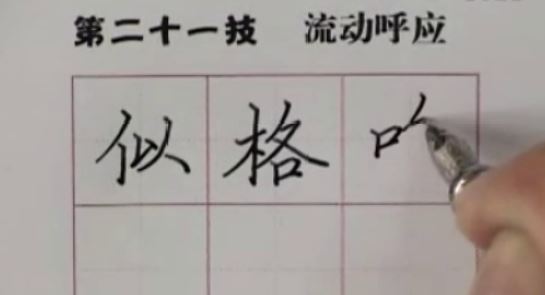 第二十一技 流动呼应
似格